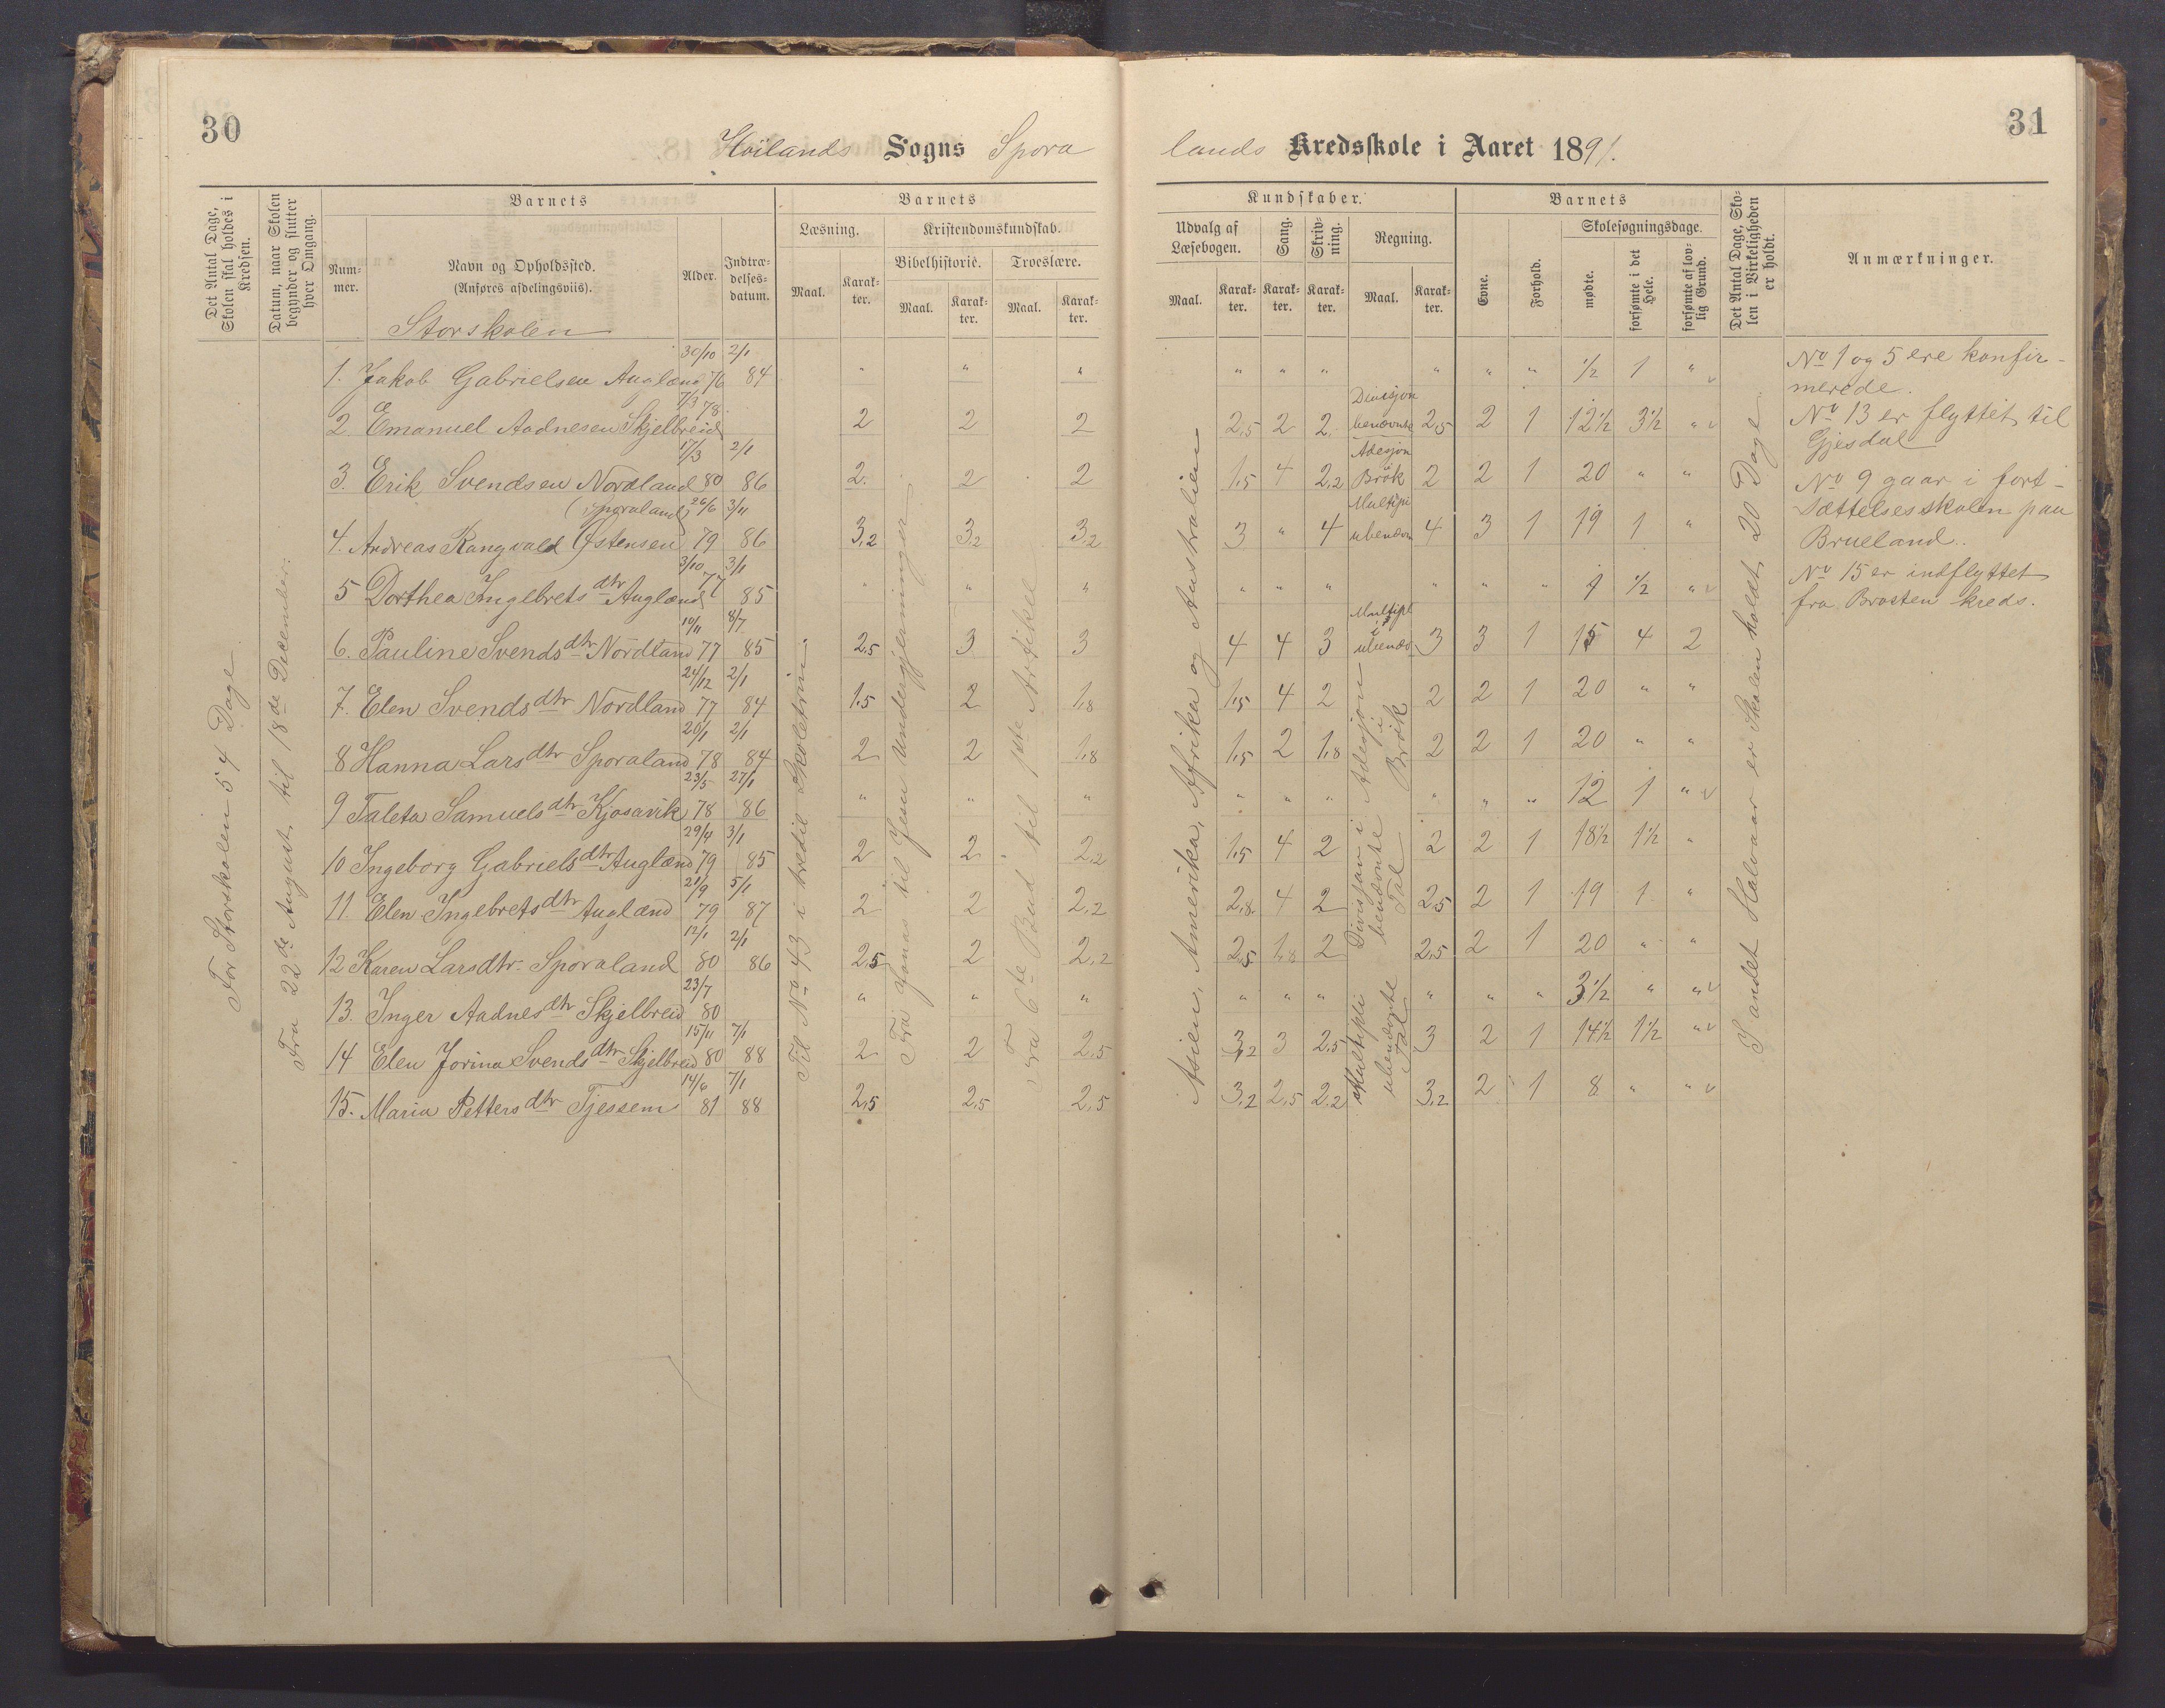 30
Høilands Sogns Spora
Det Antal Dage, Skolen skal holdes i Kredsen.
Datum, naar Skolen begynder og slutter hver Omgang.
Barnets
Num-mer.
Navn og Opholdssted.
(Anføres afdelingsviis).
Alder.
Indtræ-delses-datum.
Barnets
Læsning.
Kristendomskundskab.
Bibelhistorie.
Troeslære.
Maal.
Karak-ter.
Maal.
Karak-ter.
Maal.
Karak-ter.
Storskolen
For Storskolen 54 Dage
Fra 22de August til 18de December.
Til No 43 i tredie Skoletrin.
Fra Jonas til Jesu Undergjerninger
Fra 6te Bud til 1ste Artikel
1. Jakob Gabrielsen Auglænd 30/10 76 2/1 84 " " "
2 Emanuel Aadnesen Skjelbreid 7/3 78. 2 2 2
3. Erik Svendsen Nordland 17/3 80 2/1 86 2. 2 2
(Sporaland)
4. Andreas Rangvald Østensen 26/6 79 3/11 86 3,2 3,2 3,2
5 Dorthea Ingebretsdtr Auglænd 3/10 77 3/1 85 " " "
6. Pauline Svendsdtr Nordland 10/11 77 8/7 85 2,5 3 3
7. Elen Svendsdtr Nordland 24/12 77 2/1 84 1,5 2 1,8
8 Hanna Larsdtr Sporaland 20/1 78 2/1 84 2 2 1,8
9 Taleta Samuelsdtr Kjosavik 23/5 78 27/1 86 " " "
10 Ingeborg Gabrielsdtr Auglænd 29/4 79 3/1 85 2 2 2,2
11. Elen Ingebretsdtr Auglænd 21/9 79 5/1 87 2 2 2,2
12 Karen Larsdtr. Sporaland 12/1 80 2/1 86 2,5 2 2,2
13. Inger Aadnesdtr Skjelbreid 23/7 80 " " "
14 Elen Jorina Svendsdtr Skjelbreid 15/11 80 7/1 88 2 2 2,5
15. Maria Pettersdtr Tjessem 14/6 81 7/1 88 2,5 2,5 2,5
31
lands Kredsskole i Aaret 1891.
Kundskaber.
Udvalg af Læsebogen.
Sang.
Skriv-ning.
Regning.
Maal.
Karak-ter.
Karak-ter.
Karak-ter.
Maal.
Karak-ter.
Barnets
Evne.
Forhold.
Skolesøgningsdage.
mødte.
forsømte i det Hele.
forsømte af lov-lig Grund.
Det Antal Dage, Sko-len i Virkeligheden er holdt.
Anmærkninger.
Asien, Amerika, Afrika og Australien
I andet Halvaar er Skolen holdt 20 Dage
" " " " " " 1/2 1 " v
2,5 2 2. Divisjon benævnte 2,5 2 1 12 1/2 3 1/2 " v
1,5 4 2,2 Adesjon i Brøk 2 2 1 20 " "
3 " 4 Multipi ubenævn 4 3 1 19 1 "
" " " " " " 1 1/2 " v
4 4 3 Multipl i ubenæv 3 3 1 15 4 2
1,5 4 2 2 2 1 20 " "
1,5 2 1,8 2 2 1 20 " "
" " " " " " 12 1 " v
1,5 4 2 2 2 1 18 1/2 1 1/2 "
2,8 4 2 2,5 2 1 19 1 "
2,5 1,8 2 2,5 2 1 20 " "
" " " " " " 3 1/2 " " v
3,2 3 2,5 3 2 1 14 1/2 1 1/2 " v
3,2 2,5 2,2 3,2 2 1 8 " " v
Adesjon i Brøk
Divisjon i benævnte Tal
Multipli ubenævnte Tal
No 1 og 5 ere konfir-
merede.
No 13 er flyttet til
Gjesdal
No 9 gaar i fort-
sættelsesskolen paa
Brueland.
No 15 er indflyttet
fra Brasten kreds.